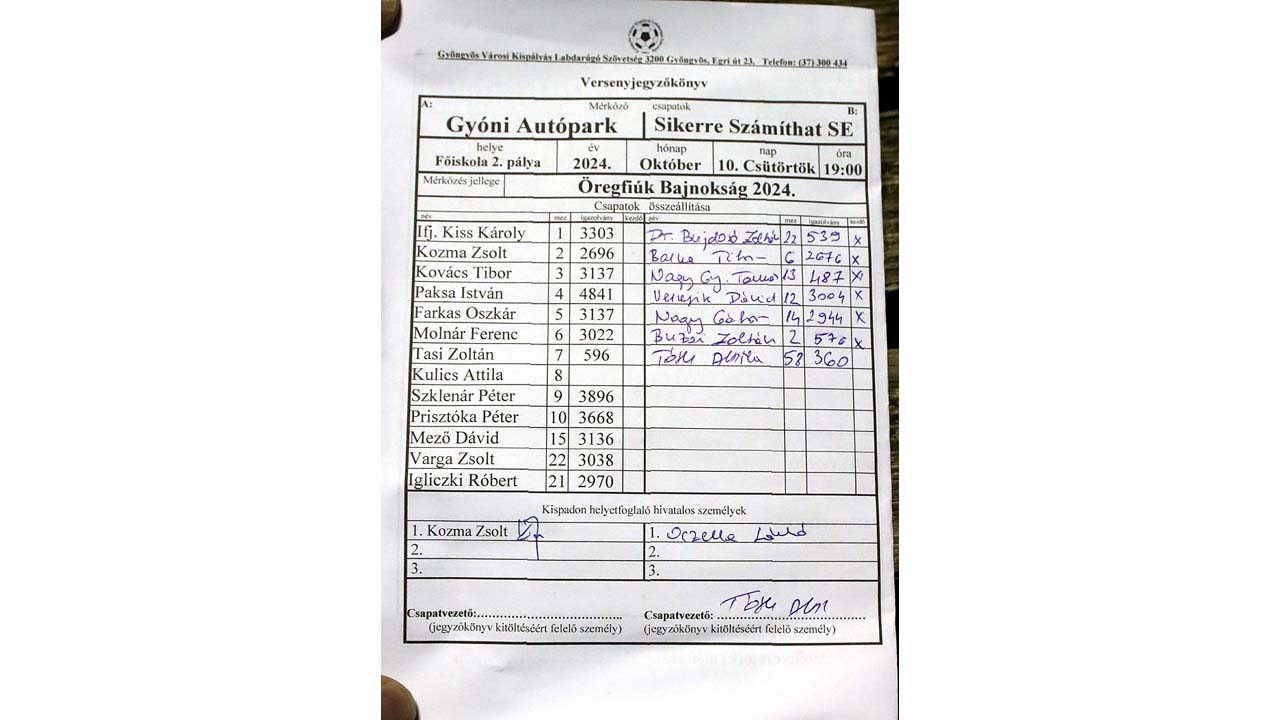 Gyöngyös Városi Kispályás Labdarúgó Szövetség 3200 Gyöngyös, Egri út 23. Telefon: (37) 300 434
Versenyjegyzőkönyv
A: Mérkőző csapatok B:
Gyóni Autópark Sikerre Számíthat SE
helye év hónap nap óra
Főiskola 2. pálya 2024. Október 10. Csütörtök 19:00
Mérkőzés jellege Öregfiúk Bajnokság 2024.
Csapatok összeállítása
név mez igazolvány kezdő név mez igazolvány kezdő
Ifj. Kiss Károly 1 3303 Dr. Bujdosó Zoltán 22 539 x
Kozma Zsolt 2 2696 Tibor 6 2676 x
Kovács Tibor 3 3137 Nagy Gy. Tamás 13 487 x
Paksa István 4 4841 Dávid 12 3004 x
Farkas Oszkár 5 3137 Nagy Gábor 14 2944 x
Molnár Ferenc 6 3022 Zoltán 2 576 x
Tasi Zoltán 7 596 Tóth Attila 58 360
Kulics Attila 8
Szklenár Péter 9 3896
Prisztóka Péter 10 3668
Mező Dávid 15 3136
Varga Zsolt 22 3038
Igliczki Róbert 21 2970
Kispadon helyetfoglaló hivatalos személyek
1. Kozma Zsolt 1. László
2. 2.
3. 3.
Csapatvezető:........................................ Csapatvezető: Tóth ........................................
(jegyzőkönyv kitöltéséért felelő személy) (jegyzőkönyv kitöltéséért felelő személy)